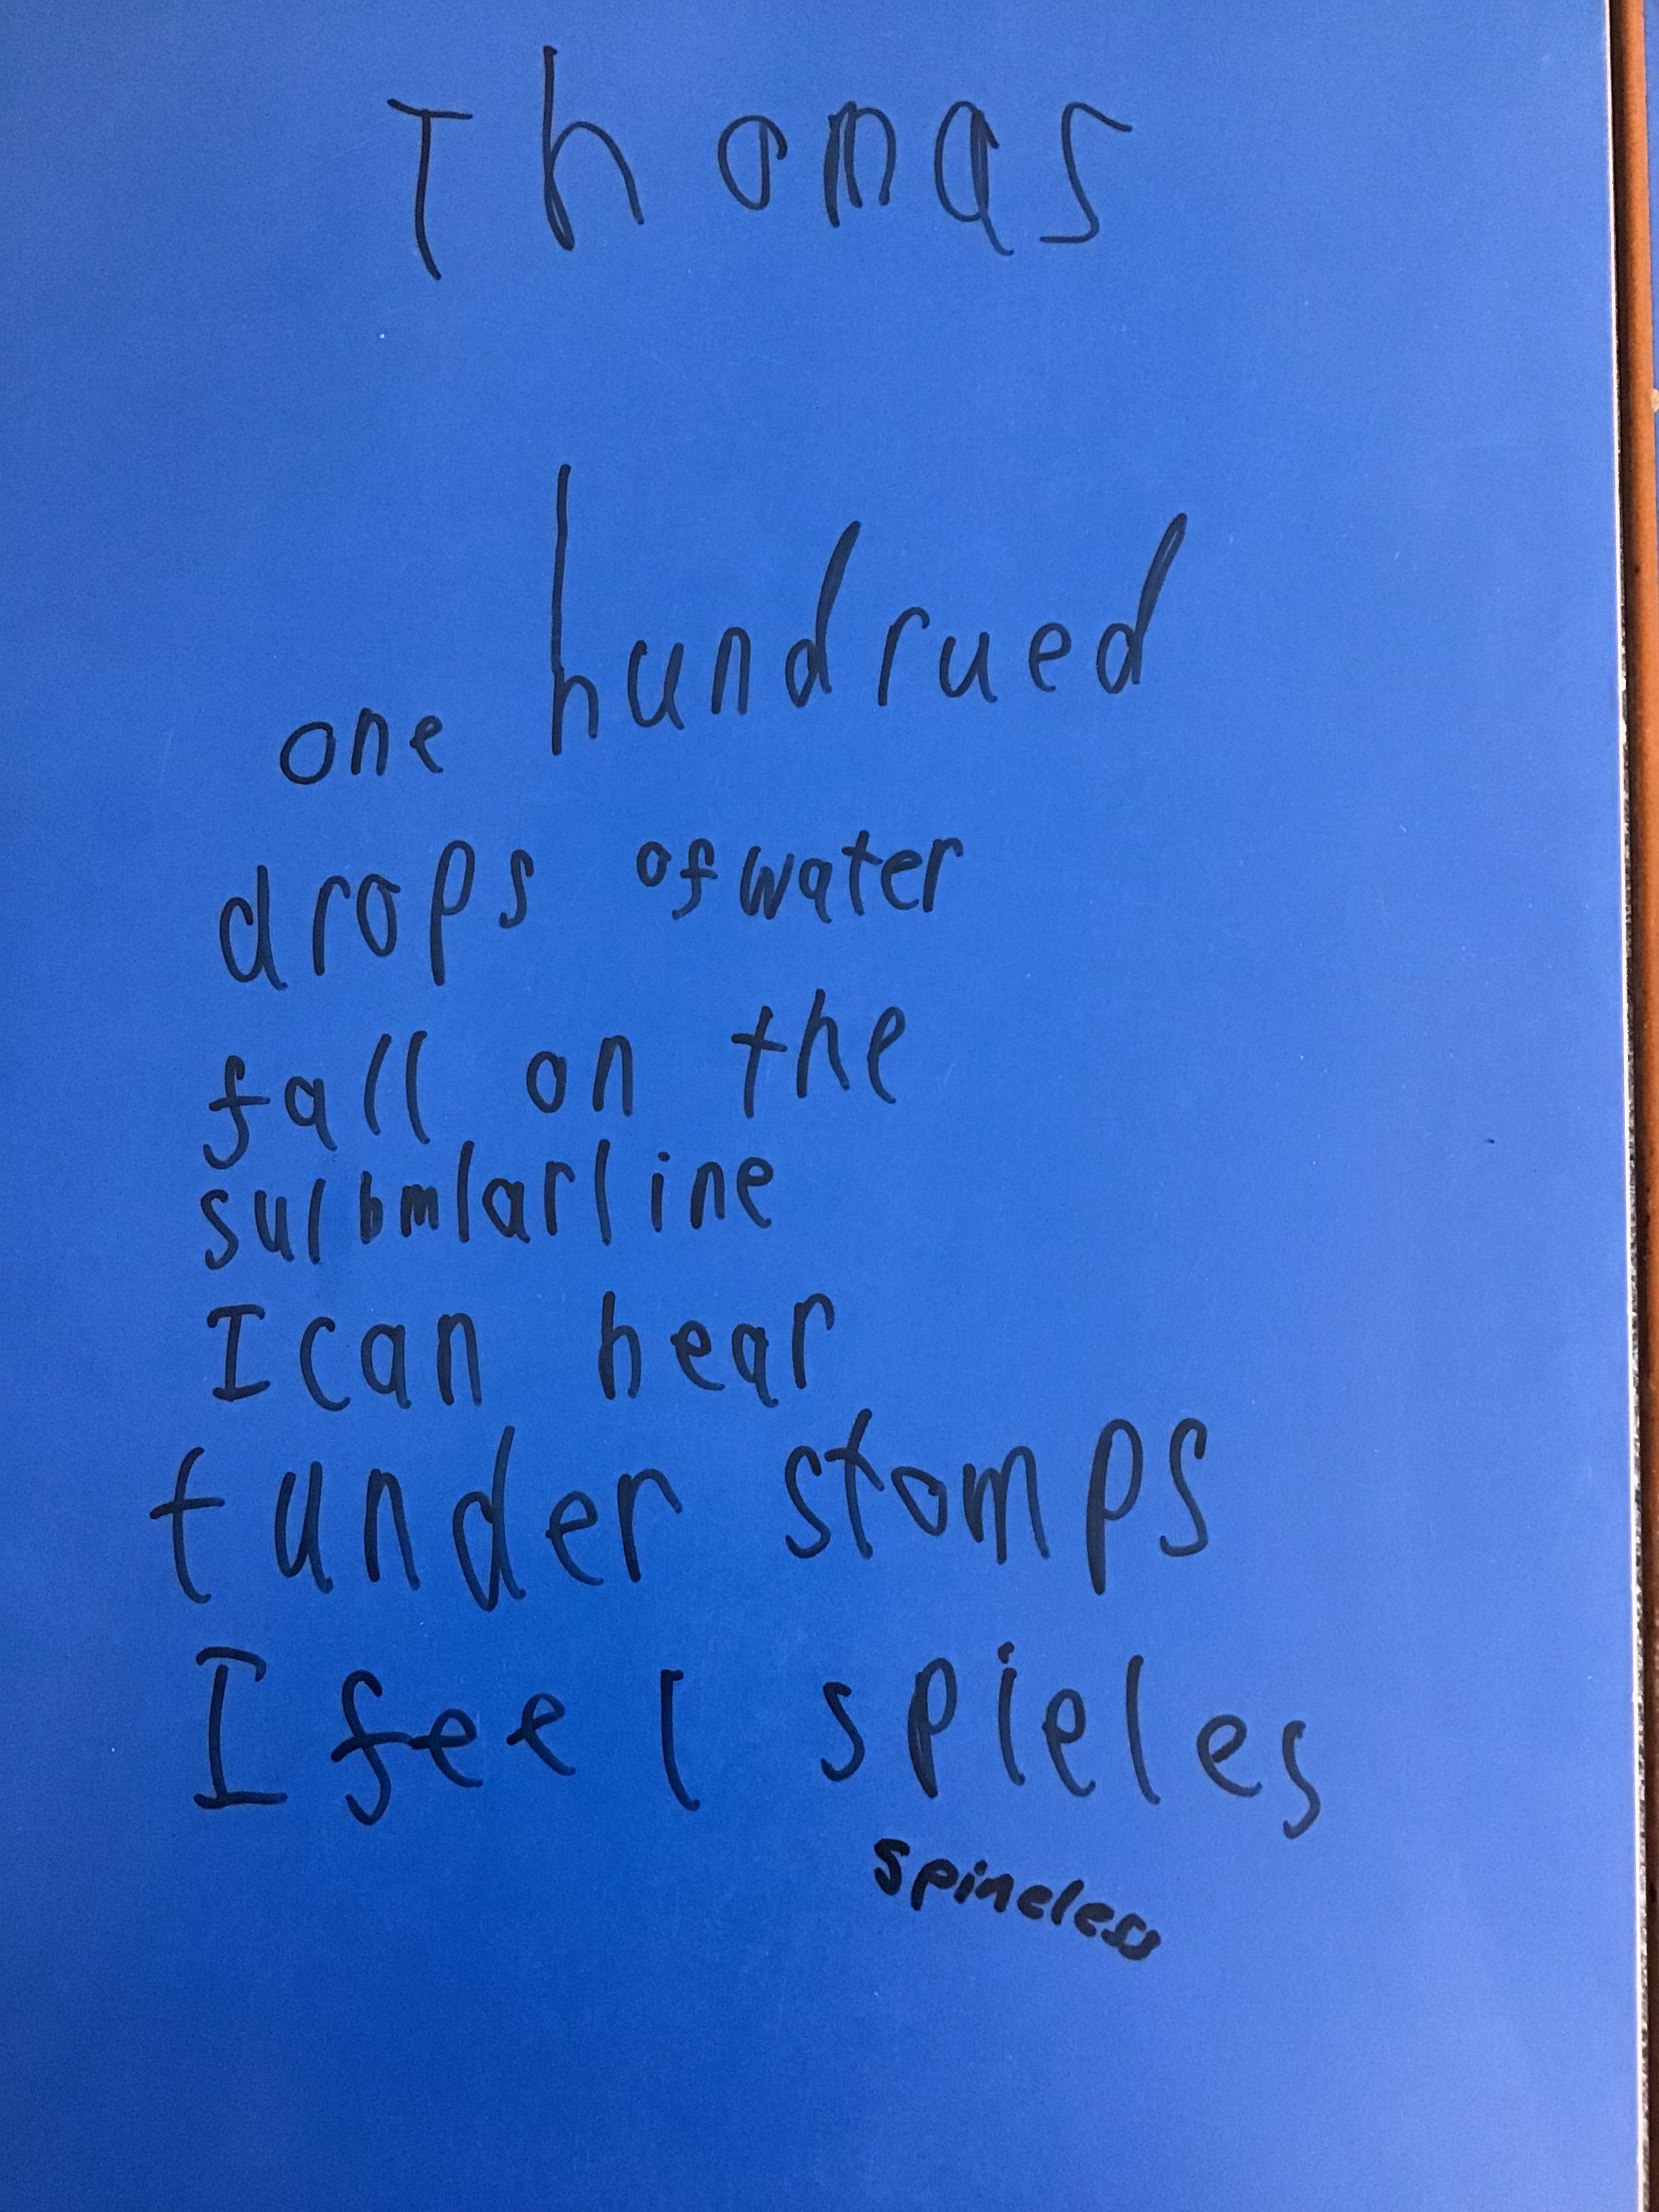 Thomas
one hundrued
drops of water
fall on the
su/bm/ar/ine
I can hear
tunder stomps
I feel spieles
spineless